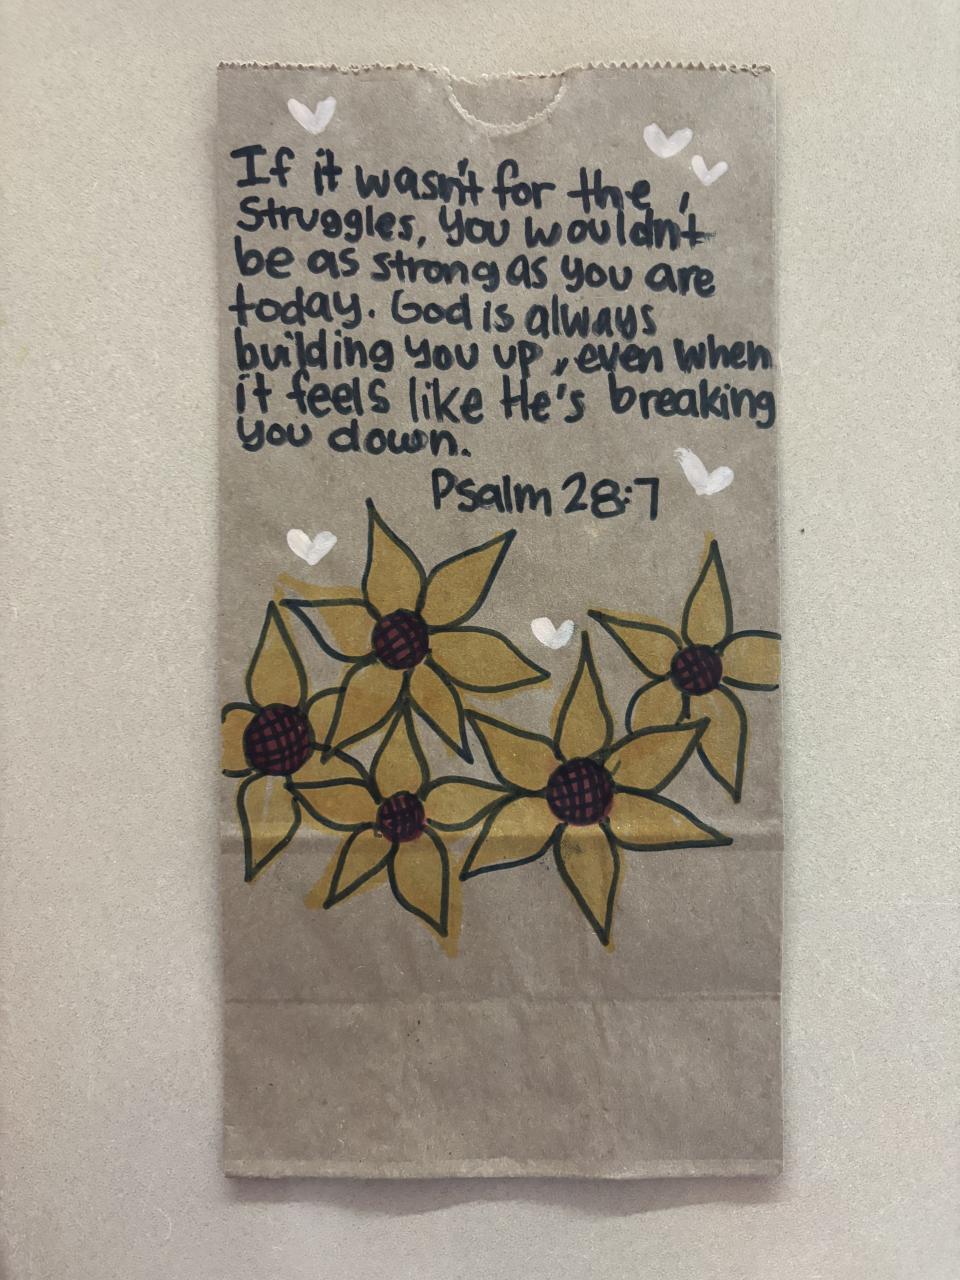 If it wasn't for the
struggles, you wouldn't
be as strong as you are
today. God is always
building you up, even when
it feels like He's breaking
you down.
Psalm 28:7